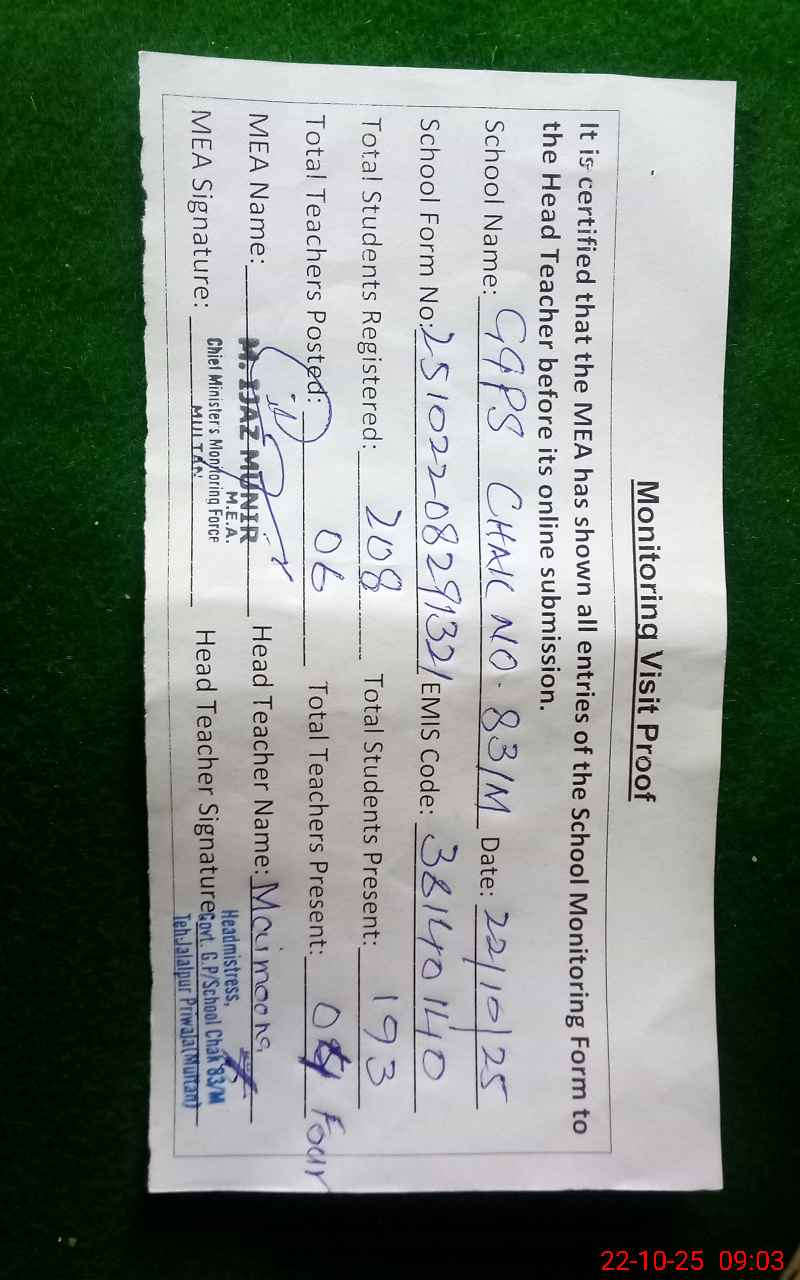 Monitoring Visit Proof
It is certified that the MEA has shown all entries of the School Monitoring Form to
the Head Teacher before its online submission.
School Name: GGPS CHAK NO. 83/M Date: 22/10/25
School Form No: 2510220829132/ EMIS Code: 38140140
Total Students Registered: 208 Total Students Present: 193
Total Teachers Posted: 06 Total Teachers Present: 04 Four
MEA Name: M. IJAZ MUNIR Head Teacher Name: Maimoona
M.E.A.
Chief Minister's Monitoring Force
MULTAN
MEA Signature: Head Teacher Signature
Headmistress,
Govt. G.P/School Chak 83/M
Teh:Jalalpur Pirwala(Multan)
22-10-25 09:03